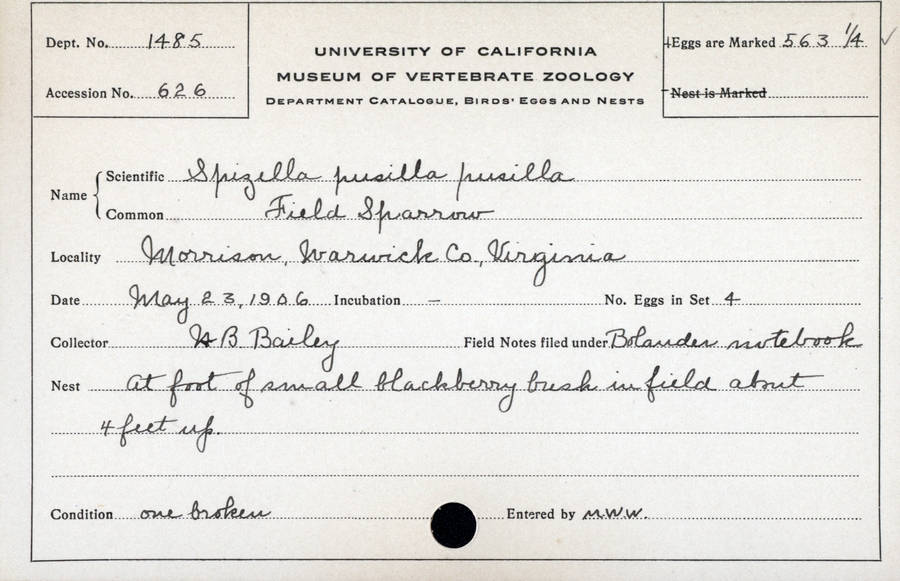 Dept. No. 1485
Accession No. 626
UNIVERSITY OF CALIFORNIA
MUSEUM OF VERTEBRATE ZOOLOGY
DEPARTMENT CATALOGUE, BIRDS' EGGS AND NESTS
Eggs are Marked 563 1/4 ✓
Nest is Marked
Name
Scientific Spizella pusilla pusilla
Common Field Sparrow
Locality Morrison, Warwick Co., Virginia
Date May 23, 1906 Incubation – No. Eggs in Set 4
Collector H B Bailey Field Notes filed under Bolander notebook
Nest At foot of small blackberry bush in field about
4 feet up.
Condition one broken Entered by M.W.W.